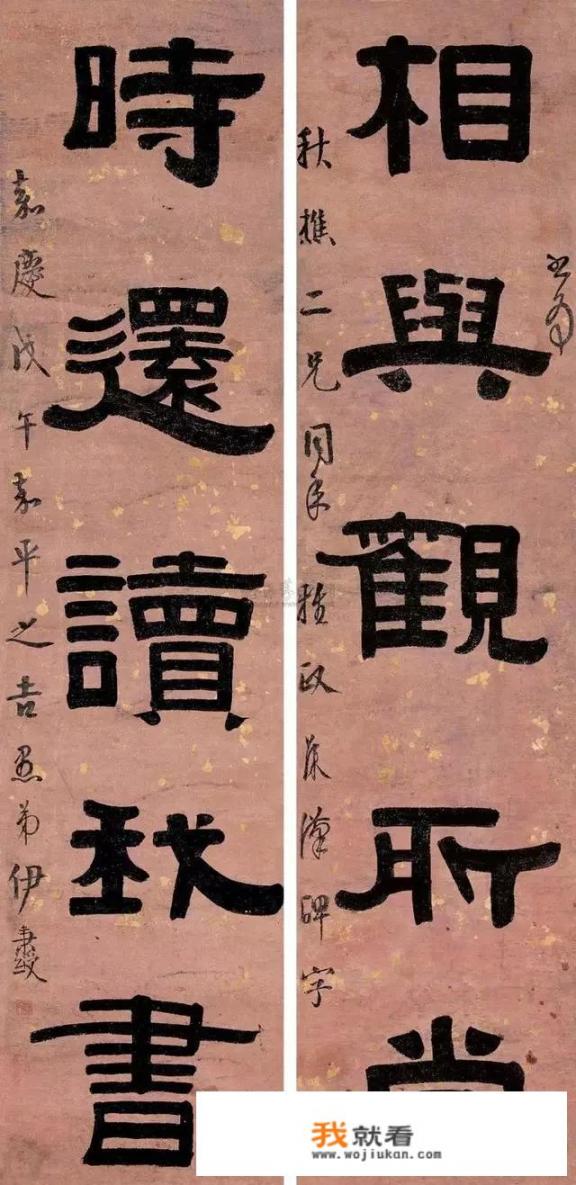 書為
相與觀所尚
秋樵二兄同年雅政集漢碑字
時還讀我書
嘉慶戊午嘉平之吉愚弟伊秉綬
我就看
www.wojiukan.com